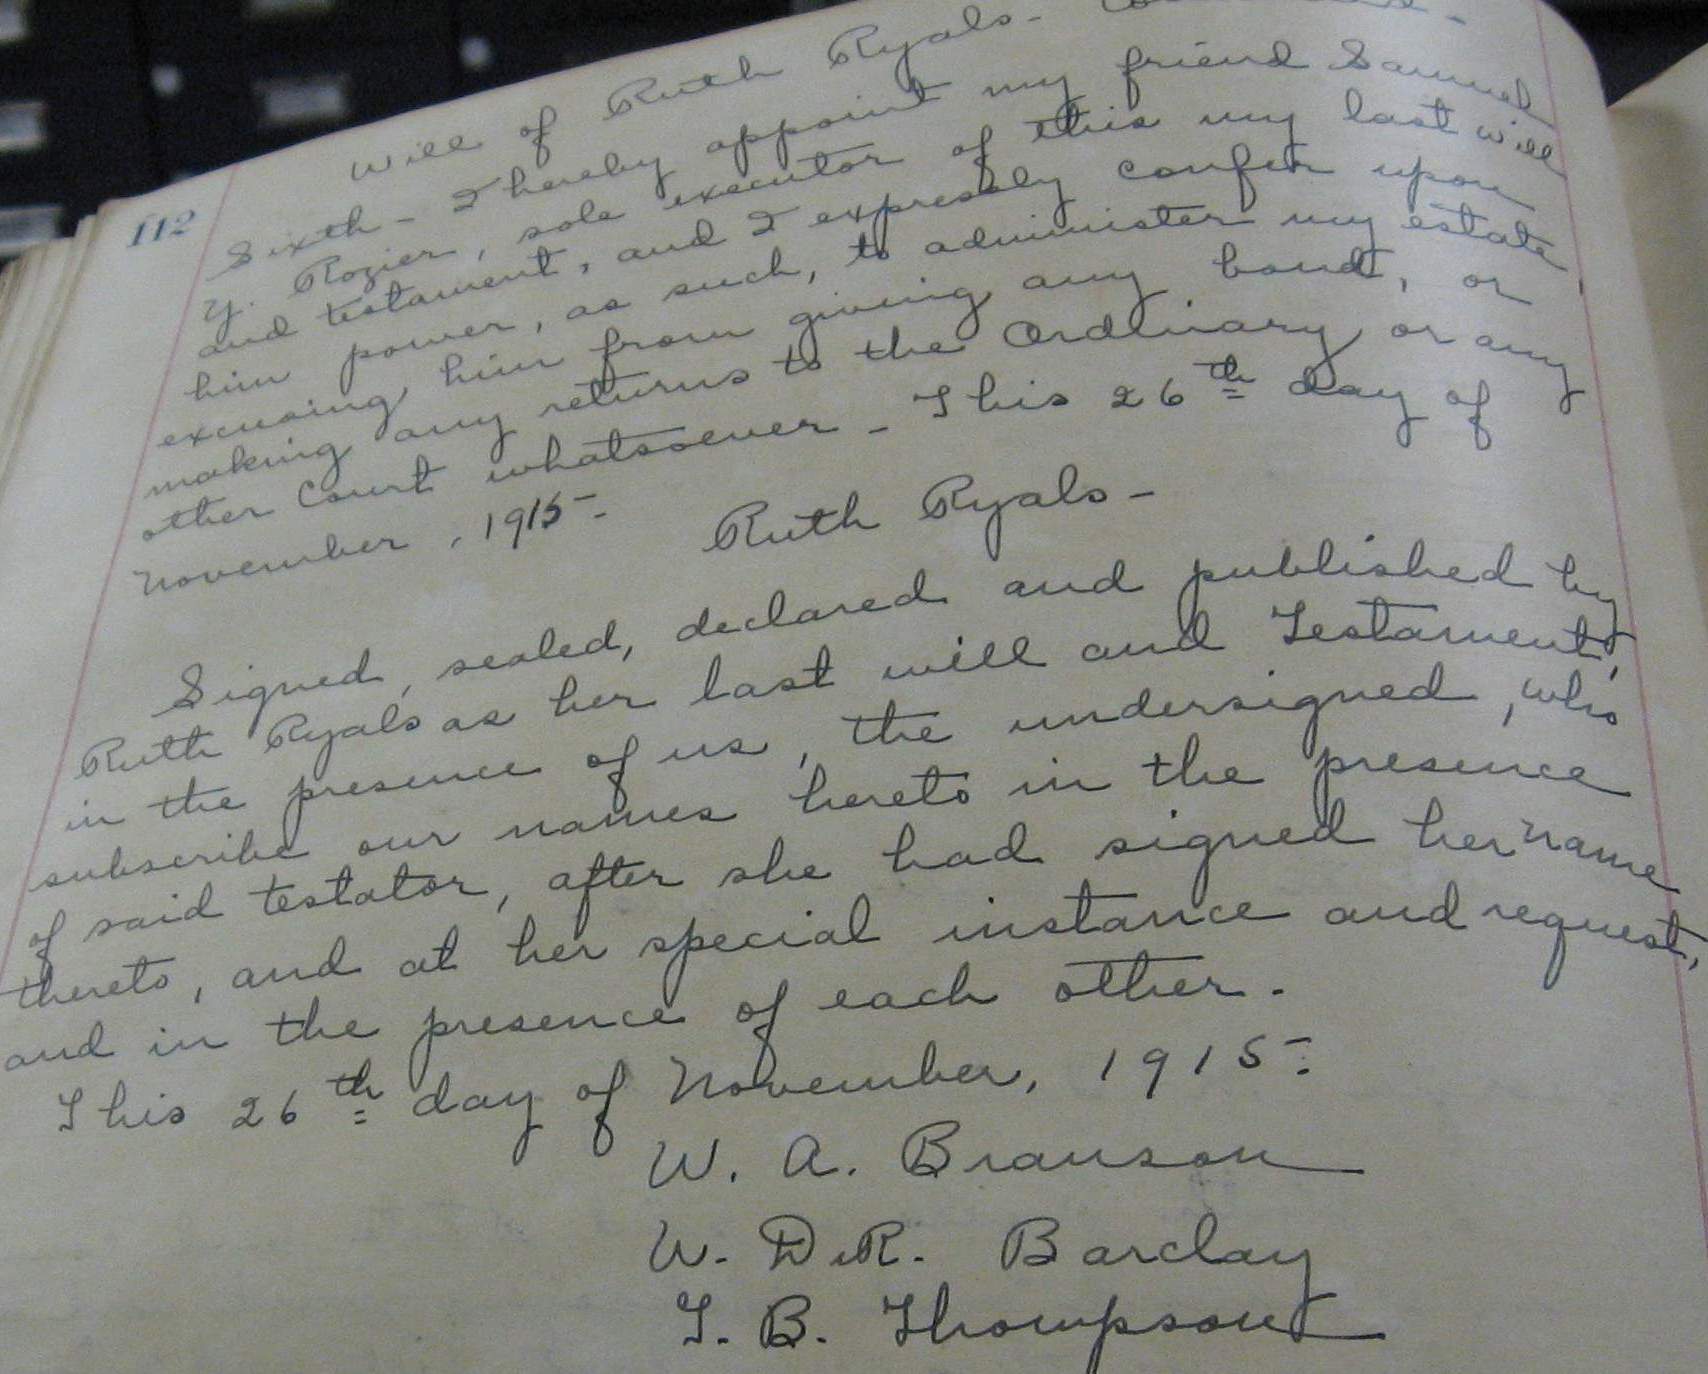 112
Will of Ruth Ryals -
Sixth - I hereby appoint my friend Samuel
Y. Rozier, sole executor of this my last will
and testament, and I expressly confer upon
him power, as such, to administer my estate,
excusing him from giving any bond, or
making any returns to the Ordinary or any
other Court whatsoever - This 26th day of
November, 1915-.
Ruth Ryals -
Signed, sealed, declared and published by
Ruth Ryals as her last will and Testament,
in the presence of us, the undersigned, who
subscribe our names hereto in the presence
of said testator, after she had signed her name
thereto, and at her special instance and request,
and in the presence of each other.
This 26th day of November, 1915-.
W. A. Branson
W. DeR. Barclay
T. B. Thompson